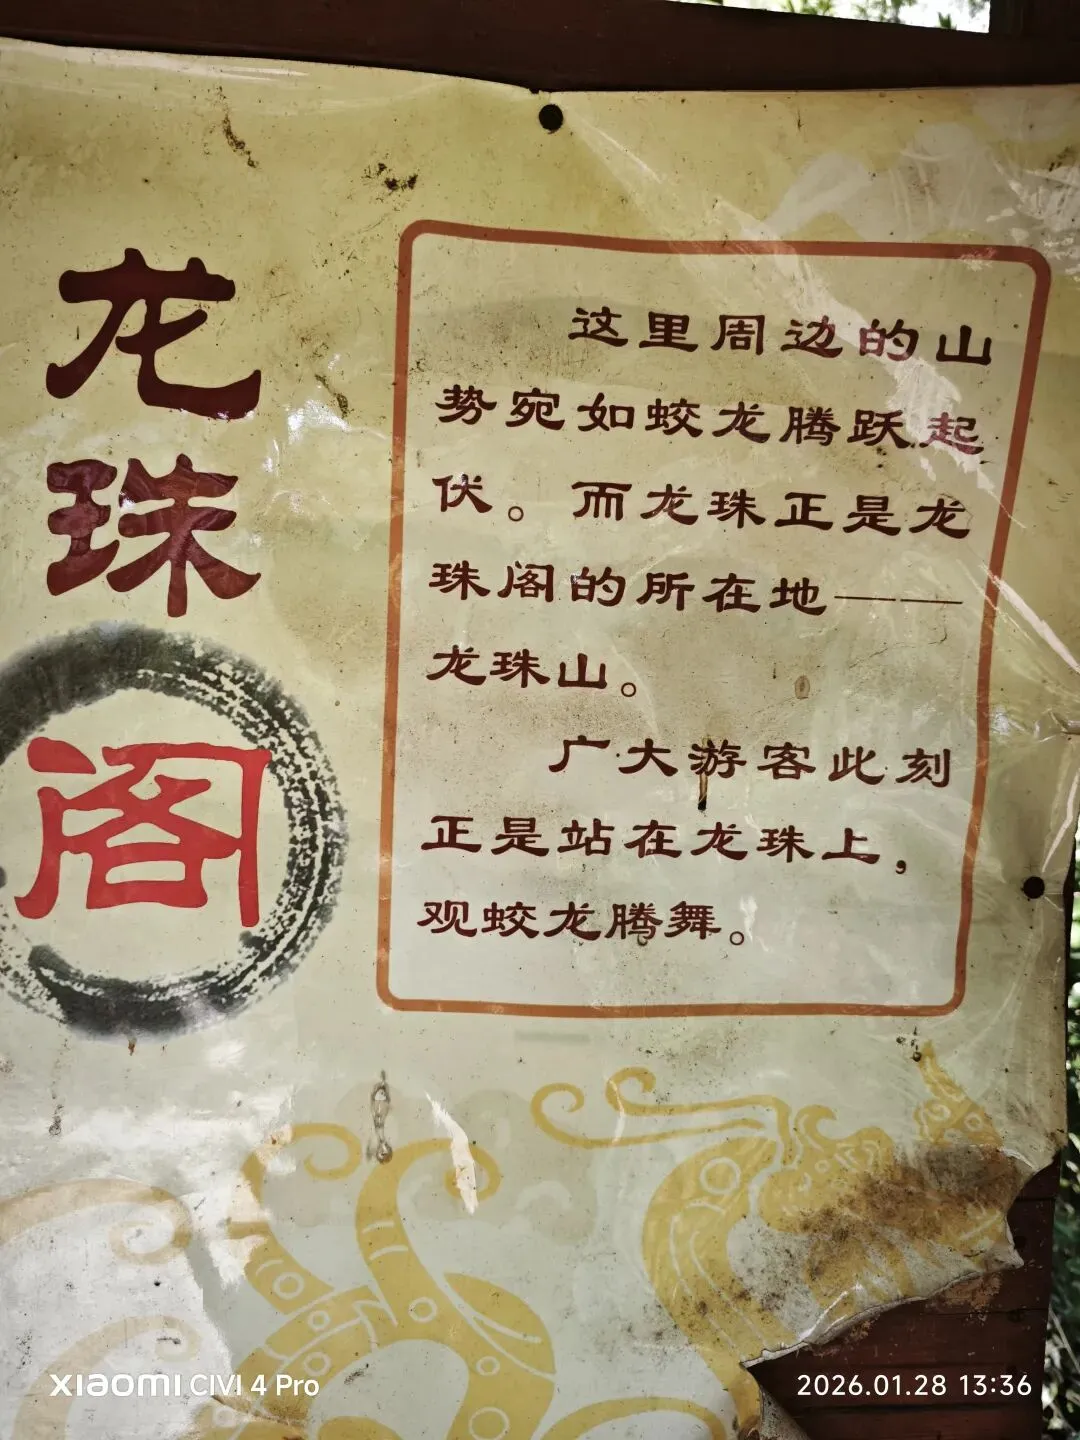 龙珠阁
这里周边的山
势宛如蛟龙腾跃起
伏。而龙珠正是龙
珠阁的所在地——
龙珠山。
广大游客此刻
正是站在龙珠上，
观蛟龙腾舞。
XIAOMI CIVI 4 Pro
2026.01.28 13:36